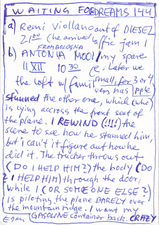 WAITING FOR DREAMS 144
a) Remi viollano out of DIESEL
21st (he arrived w/fic jam!
TERRACROLA
b) ANTONIA MOOI my space
11 XII 10 30 c. later we
the loft w/family for 3 or 4
stunned the other one, which (who)
is lying across the front seat of
the plane. I REWIND (OH!) the
scene to see how he stunned him,
but i can't figure out how he
did it. The trucker throws out
(DO I HELP HIM?) the body (DO
I HELP HIM) through the door,
while I (OR SOMEONE ELSE?)
is piloting the plane barely over
the mountain ridge. I want my
GASOLINE container back. CRAZY